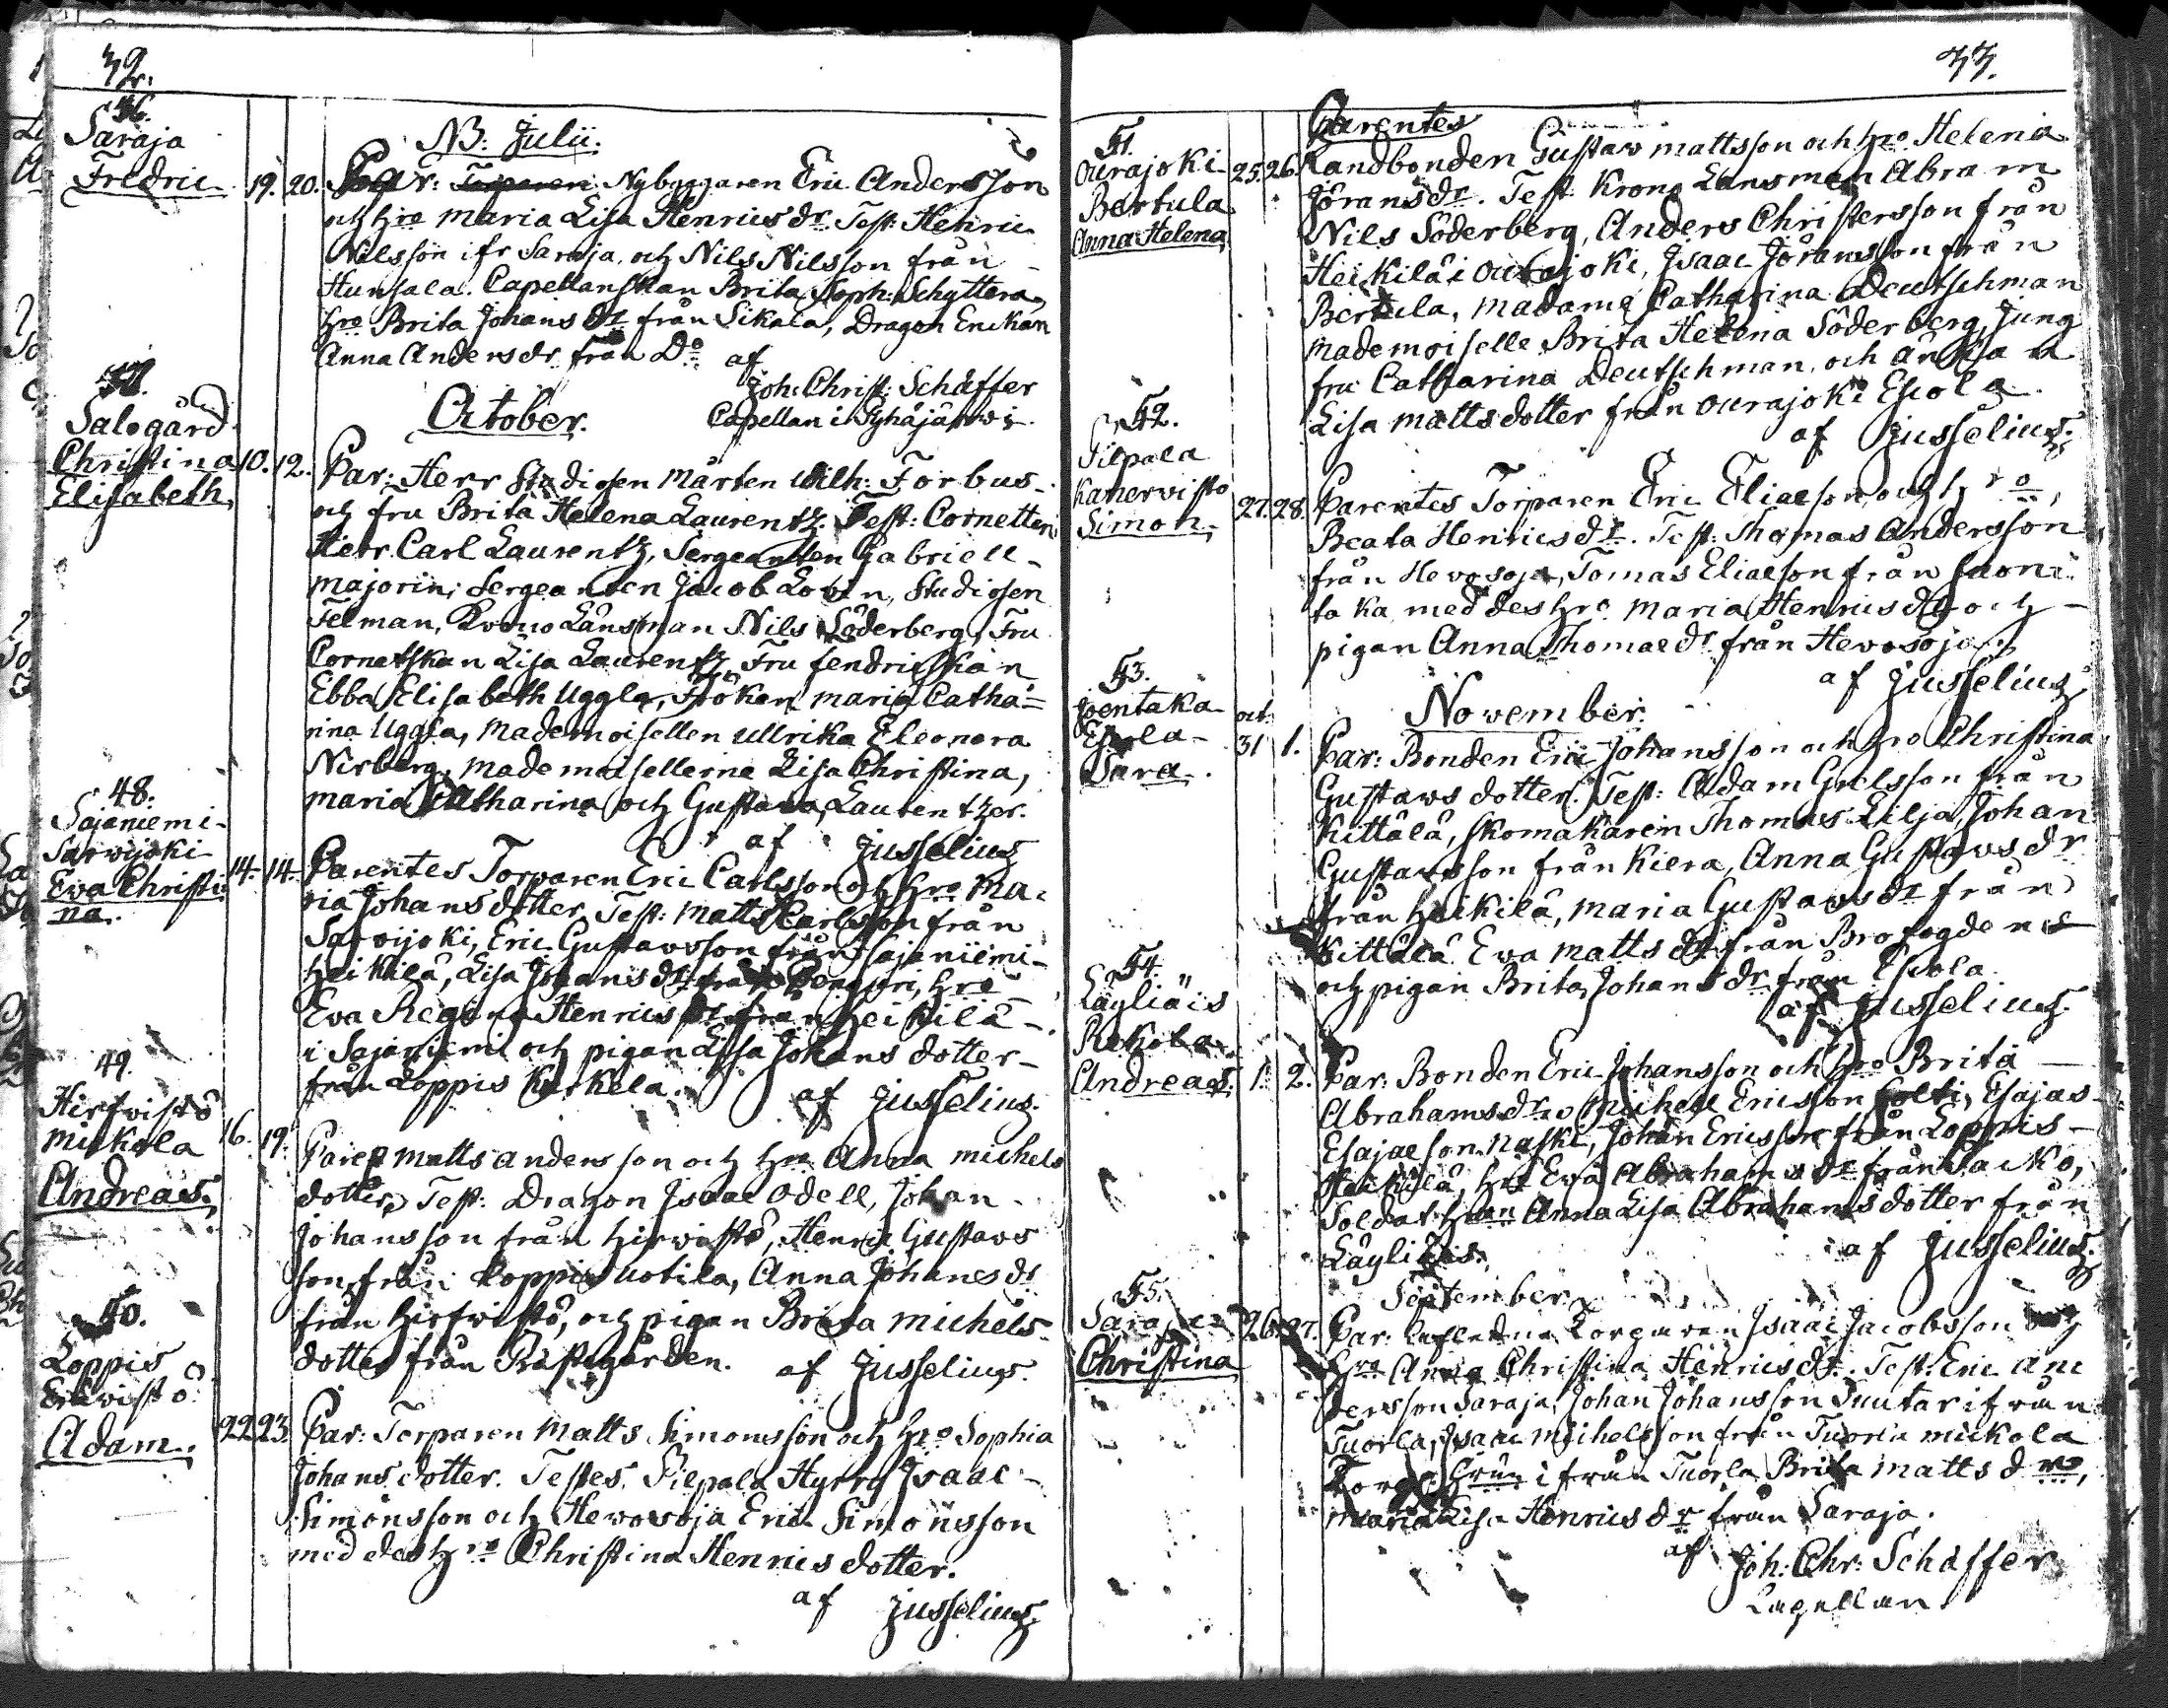 32.
46.
Saraja
Fredric
NB: Julii.
19. 20. Nybyggaren Eric Andersson
och hro Maria Lisa Henricsdr. Test: Henric
Nilsson ifr Saraja, och Nils Nilsson från
Hunsala. Capellanskan Brita Soph: Schyttera,
hro Brita Johansdr från Sikala, Dragon Enckan
Anna Andersdr från Do. af
Joh: Christ: Schäffer
Capellan i Pyhäjärwi.
October.
47.
Salogård
Christina
Elisabeth,
10. 12. Par: Herr Studiosen Mårten Wilh: Forbus
och fru Brita Helena Laurentz. Test: Cornetten
Herr Carl Laurentz, Sergeanten Gabriell
Majorin, Sergeanten Jacob Lovin, Studiosen
Felman, Krono Länsman Nils Söderberg, Fru
Cornetskan Lisa Laurentz, Fru fendrickskan
Ebba Elisabeth Uggla, Fröken Maria Catha=
rina Uggla, Mademoisellen Ullrika Eleonora
Nirberg, Mademoisellerne Lisa Christina,
Maria Catharina och Gustava Laurentzer.
af Jusselius
48.
Sajaniemi
Sarvijoki
Ewa Christi
na.
14. 14. Parentes Torparen Eric Carlsson och hro Ma-
ria Johans dotter, Test: Matts Carlsson från
Sarvijoki, Eric Gustavsson från Sajaniemi
Heikilä, Lisa Johansdr från hro
Ewa Regina Henricsdr från Heikilä
i Sajaniemi och pigan Lisa Johans dotter
från Loppis Kurkela. af Jusselius.
49.
Hirfwistö
Mickola
Andreas.
16. 19. Parent Matts Andersson och hro Anna Michels
dotter, Test: Dragon Isaac Odell, Johan
Johansson från Hirwistö, Henric Gustavs
son från Loppis Uotila, Anna Johansdr
från Hirfwistö, och pigan Brita Michels-
dotter från Prästegården. af Jusselius.
50.
Loppis
Eriwistö
Adam.
22. 23. Par: Torparen Matts Simonsson och hro Sophia
Johans dotter. Testes. Pilpala Hyrry Isaac
Simonsson och Hewosoja Eric Simonsson
med des hro Christina Henrics dotter.
af Jusselius.
33.
51.
Ourajoki
Bertula
Anna Helena
Parentes
25. 26. Landbonden Gustaw Mattsson och hro Helena
Jöransdr. Test: Krono Länsman Abram
Nils Söderberg, Anders Christersson från
Heikilä i Ourajoki, Isaac Jöransson från
Bertula, Madame Catharina Deutschman
Mademoiselle Brita Helena Söderberg, Jung
fru Catharina Deutschman, och änkan
Lisa Mattsdotter från Ourajoki Eskola.
af Jusselius.
52.
Pilpala
Kanerwisto
Simon.
27. 28. Parentes Torparen Eric Eliaeson och hro,
Beata Henricsdr. Test: Thomas Andersson
från Hevosoja, Tomas Eliaeson från
taka med des hro Maria Henricsdr och
pigan Anna Thomaedr från Hevosoja.
af Jusselius
November.
53.
Joentaka
Eskola
Sara.
oct.
31 1. Par: Bonden Eric Johansson och hro Christina
Gustaws dotter. Test: Adam Grelsson från
Kittälä, Skomakaren Thomas Lilja, Johan
Gustavsson från Kiera, Anna Gustavsdr
från Heikilä, Maria Gustavsdr från
Kittälä Ewa Mattsdr från Brofogdens
och pigan Brita Johansdr från Eskola.
af Jusselius.
54.
Läyliäis
Rekola
Andreas.
1. 2. Par: Bonden Eric Johansson och hro Brita
Abrahamsdr. Michell Ericsson Esajas
Esajaeson Naski, Johan Ericsson från Loppis
Heikilä, hro Ewa Abrahamsdr från
Soldat Anna Lisa Abrahamsdotter från
Läyliäis. af Jusselius.
September.
55.
Saraja
Christina
26. 27. Par: Isaac Jacobsson och
hro Anna Christina Henricsdr. Test: Eric An
dersson Saraja, Johan Johansson Suutari från
Tuorla, Isaac Michelsson från Tuorla Mickola
ifrån Tuorla Brita Mattsdr,
Maria Lisa Henricsdr från Saraja.
af Joh: Chr: Schäffer
Capellan